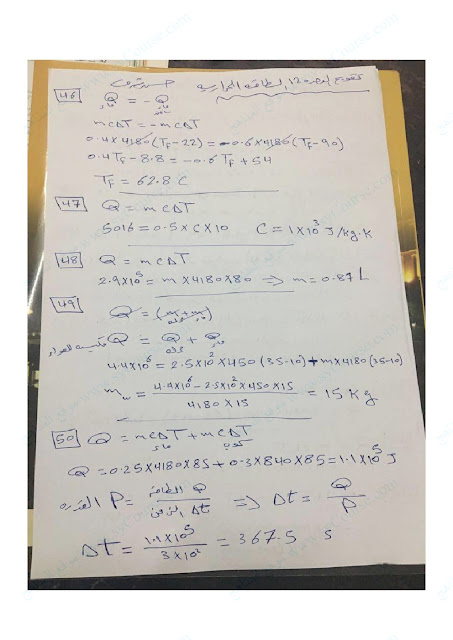 46
Q = -Q
mcΔT = -mcΔT
0.4×4180(TF-22) = -0.6×4180(TF-90)
0.4TF-8.8 = -0.6TF+54
TF = 62.8 C
47 Q = mcΔT
5016 = 0.5×C×10 C = 1×10³ J/kg.k
48 Q = mcΔT
2.9×10⁵ = m×4180×80 ⇒ m = 0.87 L
49
Q = Q + Q
4.4×10⁶ = 2.5×10²×450(35-10)+m×4180(35-10)
mw = 4.4×10⁶-2.5×10²×450×15 / 4180×15 = 15 Kg
50 Q = mcΔT + mcΔT
ماء كوب
Q = 0.25×4180×85+0.3×840×85 = 1.1×10⁵ J
القدرة P = الطاقة Q / الزمن Δt ⇒ Δt = Q / P
Δt = 1.1×10⁵ / 3×10² = 367.5 s